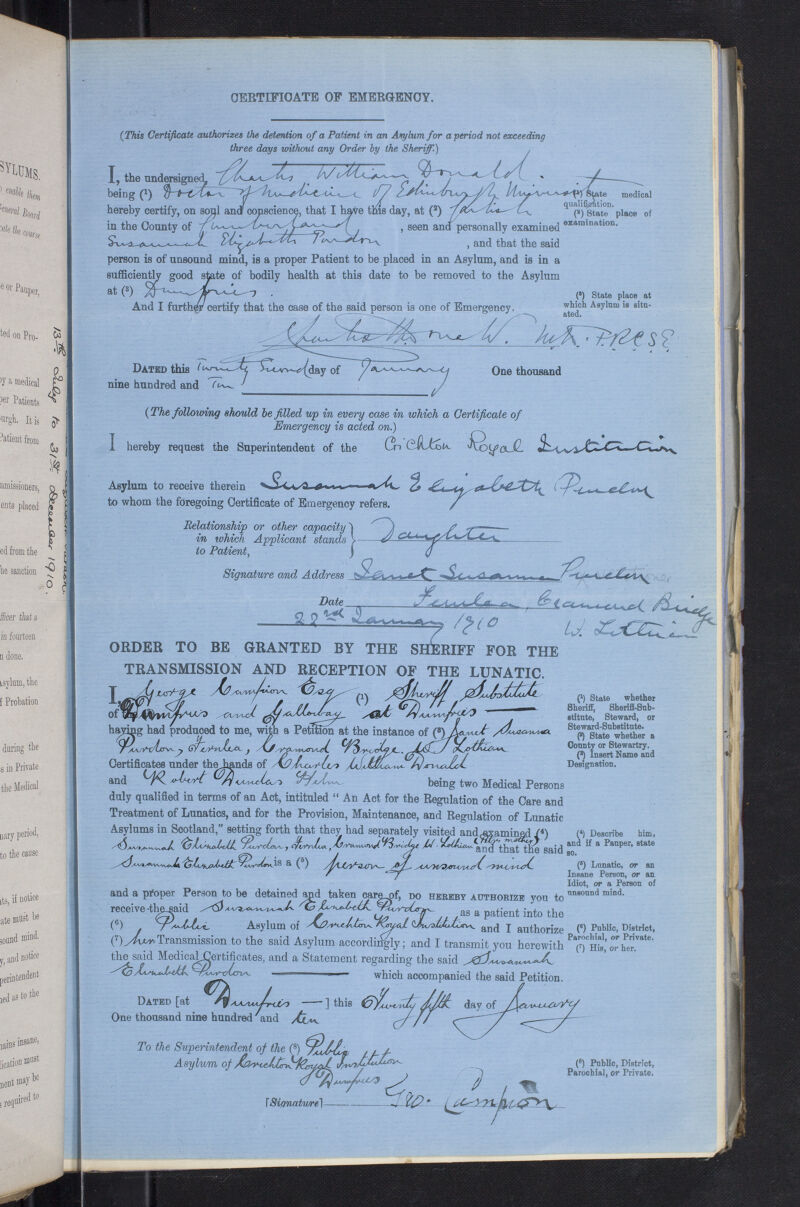 CERTIFICATE OF EMERGENCY.
(This Certificate authorizes the detention of a Patient in an Asylum for a period not exceeding
three days without any Order by the Sheriff.)
I, the undersigned, Charles William Donald.
being (¹) Doctor of Medicine of Edinburgh University
hereby certify, on soul and conscience, that I have this day, at (²) Carlisle
in the County of Cumberland, seen and personally examined
Susannah Elizabeth Purdon, and that the said
person is of unsound mind, is a proper Patient to be placed in an Asylum, and is in a
sufficiently good state of bodily health at this date to be removed to the Asylum
at (³) Dumfries.
And I further certify that the case of the said person is one of Emergency.
(¹) State medical
qualification.
(²) State place of
examination.
(³) State place at
which Asylum is situ-
ated.
F.R.C.S.E.
DATED this Twenty Second day of January One thousand
nine hundred and Ten
(The following should be filled up in every case in which a Certificate of
Emergency is acted on.)
I hereby request the Superintendent of the Crichton Royal Institution
Asylum to receive therein Susannah Elizabeth Purdon
to whom the foregoing Certificate of Emergency refers.
Relationship or other capacity
in which Applicant stands
to Patient,
Daughter
Signature and Address Janet Susanna Purdon
Fernlea, Cramond Bridge
W. Lothian
Date 22nd January 1910
ORDER TO BE GRANTED BY THE SHERIFF FOR THE
TRANSMISSION AND RECEPTION OF THE LUNATIC.
I, George Campion Esq (¹) Sheriff Substitute
of Dumfries and Galloway at Dumfries
having had produced to me, with a Petition at the instance of (³) Janet Susanna
Purdon, Fernlea, Cramond Bridge. W. Lothian
Certificates under the hands of Charles William Donald
and Robert Dundas Helm being two Medical Persons
duly qualified in terms of an Act, intituled "An Act for the Regulation of the Care and
Treatment of Lunatics, and for the Provision, Maintenance, and Regulation of Lunatic
Asylums in Scotland," setting forth that they had separately visited and examined (⁴)
Susannah Elizabeth Purdon, Fernlea, Cramond Bridge W. Lothian (Her mother) and that the said
Susannah Elizabeth Purdon is a (⁵) person of unsound mind
and a proper Person to be detained and taken care of, DO HEREBY AUTHORIZE you to
receive the said Susannah Elizabeth Purdon as a patient into the
(⁶) Public Asylum of Crichton Royal Institution and I authorize
(⁷) her Transmission to the said Asylum accordingly; and I transmit you herewith
the said Medical Certificates, and a Statement regarding the said Susannah
Elizabeth Purdon which accompanied the said Petition.
DATED [at Dumfries] this Twenty fifth day of January
One thousand nine hundred and ten
To the Superintendent of the (⁸) Public
Asylum of Crichton Royal Institution
Dumfries
[Signature] Geo. Campion
(¹) State whether
Sheriff, Sheriff-Sub-
stitute, Steward, or
Steward-Substitute.
(²) State whether a
County or Stewartry.
(³) Insert Name and
Designation.
(⁴) Describe him,
and if a Pauper, state
so.
(⁵) Lunatic, or an
Insane Person, or an
Idiot, or a Person of
unsound mind.
(⁶) Public, District,
Parochial, or Private.
(⁷) His, or her.
(⁸) Public, District,
Parochial, or Private.
13th July to 31st December 1910.
SYLUMS.
enable them
General Board
e or Pauper,
ted on Pro-
y a medical
per Patients
burgh. It is
Patient from
mmissioners,
ents placed
ed from the
he sanction
fficer that a
in fourteen
n done.
Asylum, the
f Probation
during the
s in Private
the Medical
nary period,
to the cause
ts, if notice
ate must be
sound mind.
y, and notice
perintendent
ned as to the
ains insane,
ication must
ment may be
s required to